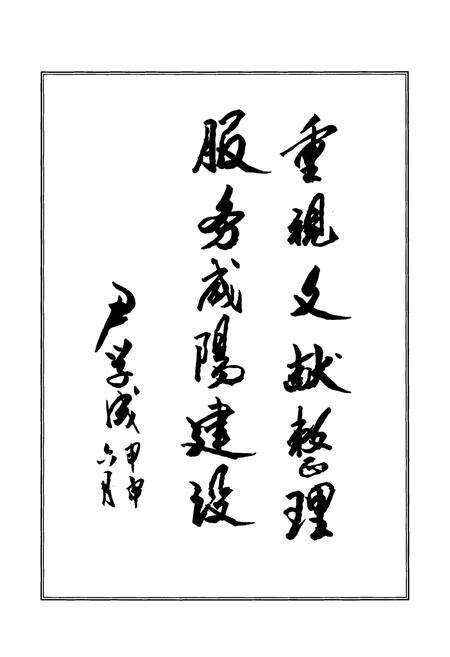 重視文献整理
服务咸陽建设
尹学成
甲申
六月